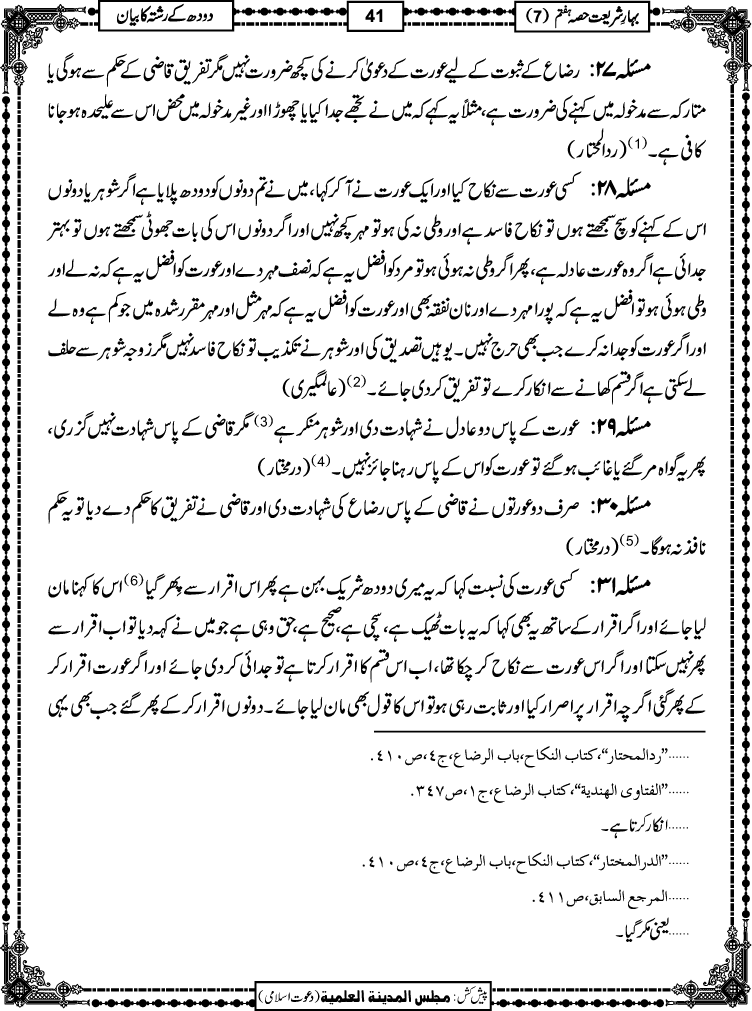 بہارِ شریعت حصہ ہفتم (7)
41
دودھ کے رشتہ کا بیان
مسئلہ ۲۷: رضاع کے ثبوت کے لیے عورت کے دعویٰ کرنے کی کچھ ضرورت نہیں مگر تفریق قاضی کے حکم سے ہوگی یا
متارکہ سے مدخولہ میں کہنے کی ضرورت ہے، مثلاً یہ کہے کہ میں نے تجھے جدا کیا یا چھوڑا اور غیر مدخولہ میں محض اس سے علیحدہ ہو جانا
کافی ہے۔ (1) (ردالمحتار)
مسئلہ ۲۸: کسی عورت سے نکاح کیا اور ایک عورت نے آ کر کہا، میں نے تم دونوں کو دودھ پلایا ہے اگر شوہر یا دونوں
اس کے کہنے کو سچ سمجھتے ہوں تو نکاح فاسد ہے اور وطی نہ کی ہو تو مہر کچھ نہیں اور اگر دونوں اس کی بات جھوٹی سمجھتے ہوں تو بہتر
جدائی ہے اگر وہ عورت عادلہ ہے، پھر اگر وطی نہ ہوئی ہو تو مرد کو افضل یہ ہے کہ نصف مہر دے اور عورت کو افضل یہ ہے کہ نہ لے اور
وطی ہوئی ہو تو افضل یہ ہے کہ پورا مہر دے اور نان نفقہ بھی اور عورت کو افضل یہ ہے کہ مہر مثل اور مہر مقرر شدہ میں جو کم ہے وہ لے
اور اگر عورت کو جدا نہ کرے جب بھی حرج نہیں۔ یوہیں تصدیق کی اور شوہر نے تکذیب تو نکاح فاسد نہیں مگر زوجہ شوہر سے حلف
لے سکتی ہے اگر قسم کھانے سے انکار کرے تو تفریق کر دی جائے۔ (2) (عالمگیری)
مسئلہ ۲۹: عورت کے پاس دو عادل نے شہادت دی اور شوہر منکر ہے (3) مگر قاضی کے پاس شہادت نہیں گزری،
پھر یہ گواہ مر گئے یا غائب ہو گئے تو عورت کو اس کے پاس رہنا جائز نہیں۔ (4) (درمختار)
مسئلہ ۳۰: صرف دو عورتوں نے قاضی کے پاس رضاع کی شہادت دی اور قاضی نے تفریق کا حکم دے دیا تو یہ حکم
نافذ نہ ہوگا۔ (5) (درمختار)
مسئلہ ۳۱: کسی عورت کی نسبت کہا کہ یہ میری دودھ شریک بہن ہے پھر اس اقرار سے پھر گیا (6) اس کا کہنا مان
لیا جائے اور اگر اقرار کے ساتھ یہ بھی کہا کہ یہ بات ٹھیک ہے، سچی ہے، صحیح ہے، حق وہی ہے جو میں نے کہہ دیا تو اب اقرار سے
پھر نہیں سکتا اور اگر اس عورت سے نکاح کر چکا تھا، اب اس قسم کا اقرار کرتا ہے تو جدائی کر دی جائے اور اگر عورت اقرار کر
کے پھر گئی اگرچہ اقرار پر اصرار کیا اور ثابت رہی ہو تو اس کا قول بھی مان لیا جائے۔ دونوں اقرار کر کے پھر گئے جب بھی یہی
......”ردالمحتار“، کتاب النکاح، باب الرضاع، ج٤، ص٤١٠.
......”الفتاوی الهندیة“، کتاب الرضاع، ج١، ص٣٤٧.
......انکار کرتا ہے۔
......”الدرالمختار“، کتاب النکاح، باب الرضاع، ج٤، ص٤١٠.
......المرجع السابق، ص٤١١.
......یعنی مکر گیا۔
پیش کش: مجلس المدینة العلمیة (دعوت اسلامی)